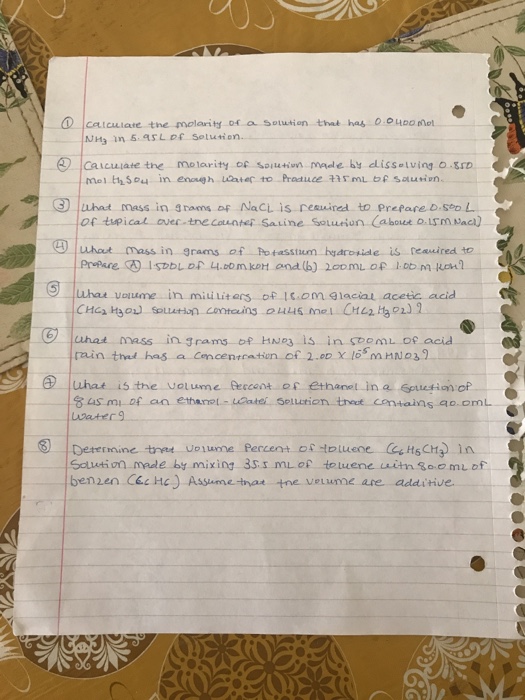 ① Calculate the molarity of a solution that has 0.0400mol
NH3 in 5.95L of solution.
② Calculate the molarity of solution made by dissolving 0.850
mol H2SO4 in enough water to Produce 775mL of solution.
③ What mass in grams of NaCl is required to prepare 0.500 L
of typical over-the counter saline solution (about 0.15m Nacl)
④ What mass in grams of Potassium hydroxide is required to
Prepare Ⓐ 1.500L of 4.00m KOH and (b) 200mL of 1.00 m KOH?
⑤ What volume in milliliters of 18.0M glacial acetic acid
(HC2H3O2) solution contains 0.445 mol (HC2H3O2)?
⑥ What mass in grams of HNO3 is in 500mL of acid
rain that has a concentration of 2.00 x 10-5 m HNO3?
⑦ What is the volume Percent of ethanol in a solution of
845 ml of an ethanol-water solution that contains 90.0mL
water?
⑧ Determine that volume Percent of toluene (C6H5CH3) in
Solution made by mixing 35.5 mL of toluene with 80.0mL of
benzen (C6H6) Assume that the volume are additive